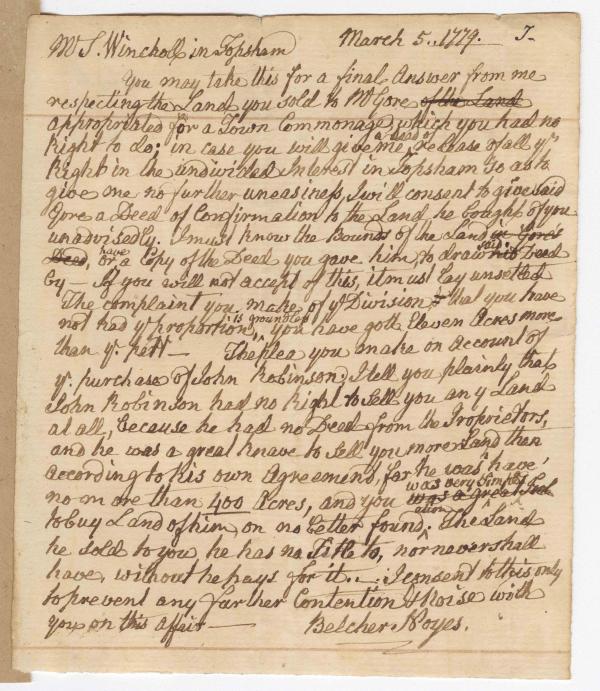 Mr S. Wincholl in Topsham March 5. 1779. — T
You may take this for a final Answer from me
respecting the Land you sold to Mr Gore of the Land
appropriated for a Town Commonage, which you had no
Right to do; in case you will give me, a deed of release of all yr
Right in the undivided Interest in Topsham So as to
give me no further uneasiness, I will consent to give said
Gore a Deed of Confirmation to the Land he bought of you
unadvisedly. I must know the Bounds of the Land in Gore's
Deed, or have a Copy of the Deed you gave him, to draw his said Deed
by — If you will not accept of this, it must lay unsettled
The complaint you make of yr Division that you have
not had yr proportion, is groundless, you have gott Eleven Acres more
than yr. pett — The plea you make on account of
yr. purchase of John Robinson, I tell you plainly, that
John Robinson had no Right to sell you any Land
at all, because he had no Deed from the Proprietors,
and he was a great knave to sell you more Land than
according to his own Agreement, for he was have
no more than 400 Acres, and you was very simple was a great
to buy Land of him, on no better foundation. The Land
he sold to you he has no Title to, nor never shall
have, without he pays for it. — I consent to this only
to prevent any farther Contention & Noise with
you on this affair — Belcher Noyes.